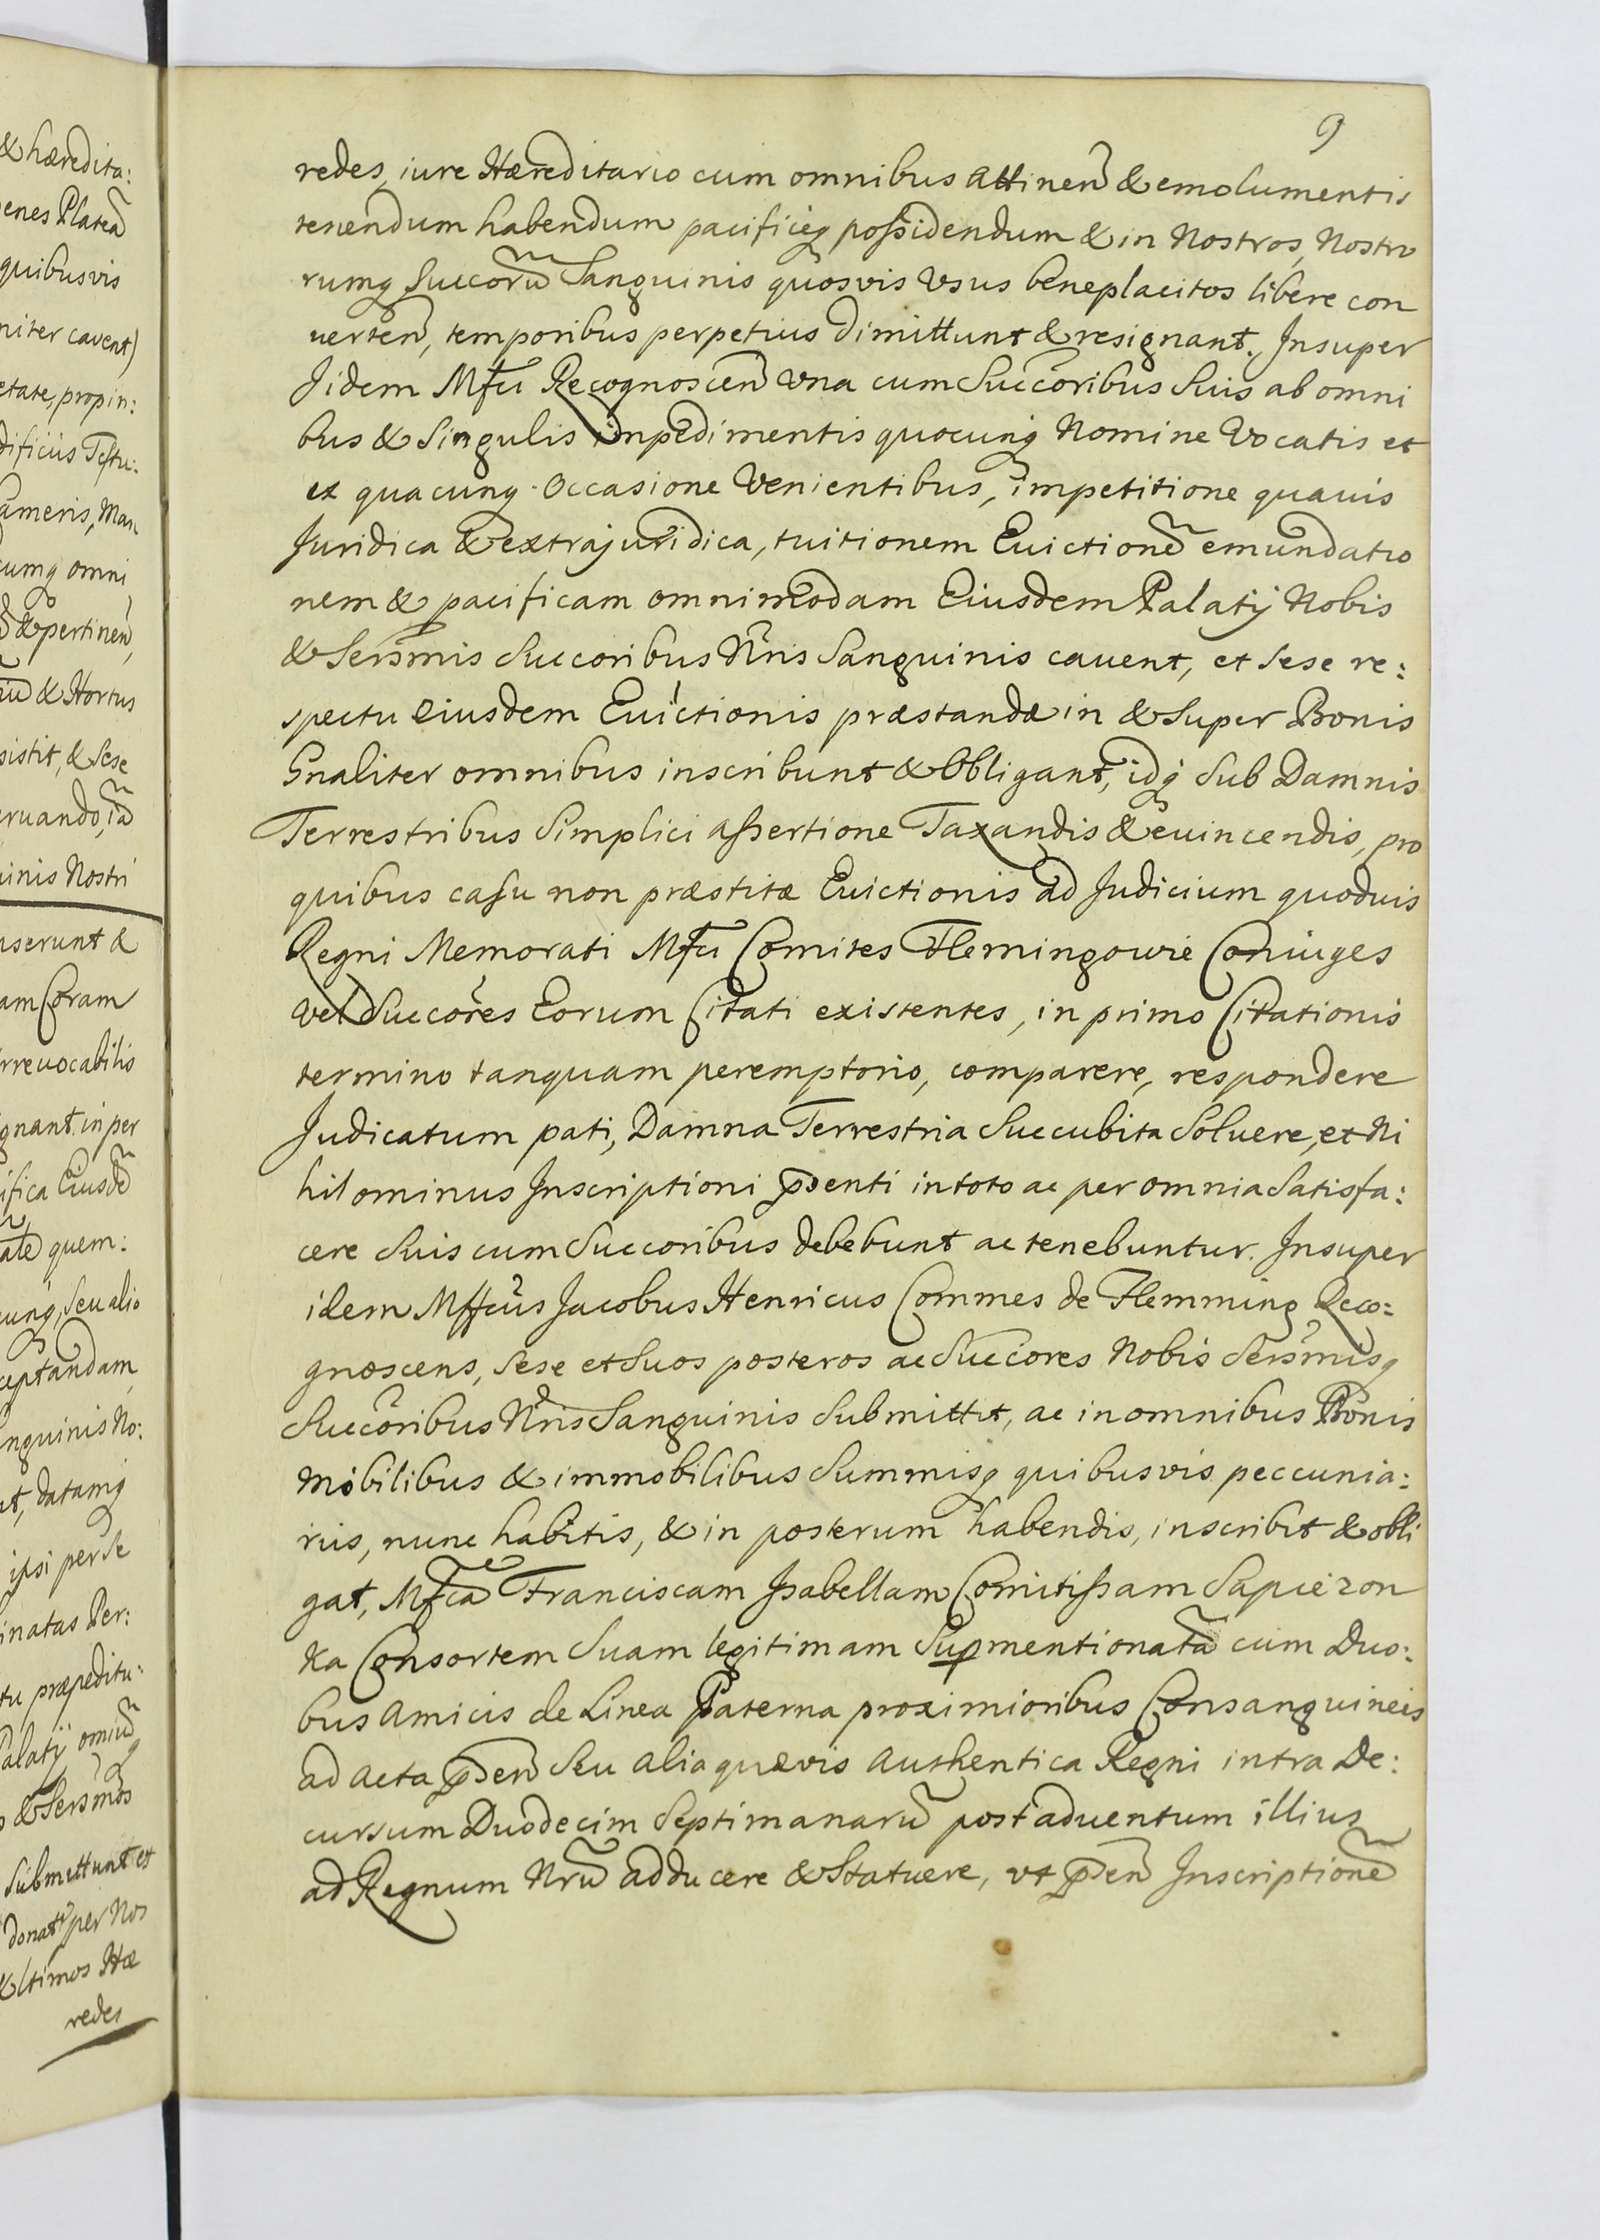 & hæredita:
enes Plateã
quibusvis
niter cavent)
etate, propin:
dificiis Testu:
ameris, Man
cumq omni
& pertinen̄,
& Hortus
sistit, & sese
eruando, iã
uinis Nostri
nserunt &
am Coram
rreuocabilis
gnant in per
ifica Eiusdẽ
quem:
cunq, seu alio
ceptandam
nguinis No:
nt, datamq
ipsi per se
inatas Per:
tu præpeditu:
Palatÿ omiũ
& Sers̄mos
submittunt et
donatʒ per Nos
ltimos Hæ
redes
9
redes, iure Hæreditario cum omnibus attinen̄ & emolumentis
tenendum habendum pacificéq possidendum & in Nostros, Nostro
rumq Succorũ Sanguinis quosvis Vsus beneplacitos libere con
uerten̄, temporibus perpetius dimittunt & resignant. Insuper
Jidem Mfci Recognoscen̄ vna cum Succoribus Suis ab omni
bus & Singulis impedimentis quocunq Nomine Vocatis et
ex quacunq Occasione Venientibus, impetitione quauis
Juridica & extrajuridica, tuitionem Euictionẽ emundatio
nem & pacificam omnimodam Eiusdem Palatÿ Nobis
& Sers̄mis Succoribus Nr̄is Sanguinis cauent, et sese re:
spectu eiusdem Euictionis præstandæ in & super Bonis
Gnaliter omnibus inscribunt & Obligant, idq sub Damnis
Terrestribus Simplici assertione Taxandis & euincendis, pro
quibus casu non præstitæ Euictionis ad Judicium quoduis
Regni Memorati Mfci Comites Flemingowie Coniuges
vel Succores Eorum Citati existentes, in primo Citationis
termino tanquam peremptorio, comparere, respondere
Judicatum pati, Damna Terrestria Succubita Soluere, et Ni
hilominus Inscriptioni p̄senti in toto ac per omnia Satisfa:
cere Suis cum Succoribus debebunt ac tenebuntur. Insuper
idem Mfficus Jacobus Henricus Commes de Flemming Reco:
gnoscens, Sese et Suos posteros ac Succores Nobis Sers̄misq
Succoribus Nr̄is Sanguinis Submittit, ac in omnibus Bonis
mobilibus & immobilibus Summisq quibusvis peccunia:
riis, nunc habitis, & in posterum habendis, inscribit & obli
gat, Mfcã Franciscam Isabellam Comitissam Sapiezon
ka Consortem Suam legitimam Supmentionatã cum Duo:
bus Amicis de Linea Paterna proximioribus Consanguineis
ad Acta p̄sen̄ Seu alia quævis Authentica Regni intra De:
cursum Duodecim Septimanarũ post aduentum illius
ad Regnum Nrũ adducere & Statuere, vt p̄sen̄ Inscriptionẽ